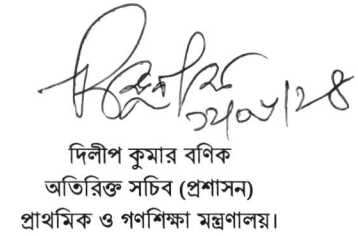 দিলীপ কুমার বণিক
অতিরিক্ত সচিব (প্রশাসন)
প্রাথমিক ও গণশিক্ষা মন্ত্রণালয়।